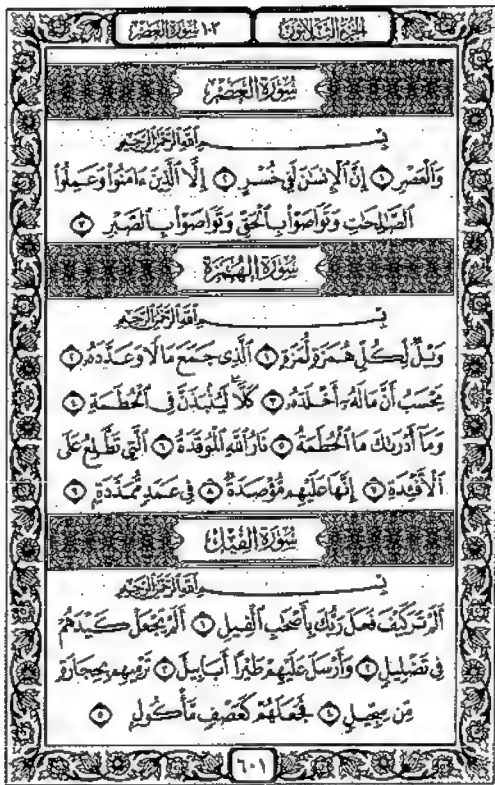 الجزء الثلاثون
١٠٣ سورة العصر
سُورَةُ العَصْرِ
بِسْمِ ٱللَّهِ ٱلرَّحْمَٰنِ ٱلرَّحِيمِ
وَٱلْعَصْرِ ١ إِنَّ ٱلْإِنسَٰنَ لَفِى خُسْرٍ ٢ إِلَّا ٱلَّذِينَ ءَامَنُوا۟ وَعَمِلُوا۟
ٱلصَّٰلِحَٰتِ وَتَوَاصَوْا۟ بِٱلْحَقِّ وَتَوَاصَوْا۟ بِٱلصَّبْرِ ٣
سُورَةُ الهُمَزَةِ
بِسْمِ ٱللَّهِ ٱلرَّحْمَٰنِ ٱلرَّحِيمِ
وَيْلٌ لِّكُلِّ هُمَزَةٍ لُّمَزَةٍ ١ ٱلَّذِى جَمَعَ مَالًا وَعَدَّدَهُۥ ٢
يَحْسَبُ أَنَّ مَالَهُۥٓ أَخْلَدَهُۥ ٣ كَلَّا ۖ لَيُنۢبَذَنَّ فِى ٱلْحُطَمَةِ ٤
وَمَآ أَدْرَىٰكَ مَا ٱلْحُطَمَةُ ٥ نَارُ ٱللَّهِ ٱلْمُوقَدَةُ ٦ ٱلَّتِى تَطَّلِعُ عَلَى
ٱلْأَفْـِٔدَةِ ٧ إِنَّهَا عَلَيْهِم مُّؤْصَدَةٌ ٨ فِى عَمَدٍ مُّمَدَّدَةٍۭ ٩
سُورَةُ الفِيلِ
بِسْمِ ٱللَّهِ ٱلرَّحْمَٰنِ ٱلرَّحِيمِ
أَلَمْ تَرَ كَيْفَ فَعَلَ رَبُّكَ بِأَصْحَٰبِ ٱلْفِيلِ ١ أَلَمْ يَجْعَلْ كَيْدَهُمْ
فِى تَضْلِيلٍ ٢ وَأَرْسَلَ عَلَيْهِمْ طَيْرًا أَبَابِيلَ ٣ تَرْمِيهِم بِحِجَارَةٍ
مِّن سِجِّيلٍ ٤ فَجَعَلَهُمْ كَعَصْفٍ مَّأْكُولٍۭ ٥
٦٠١